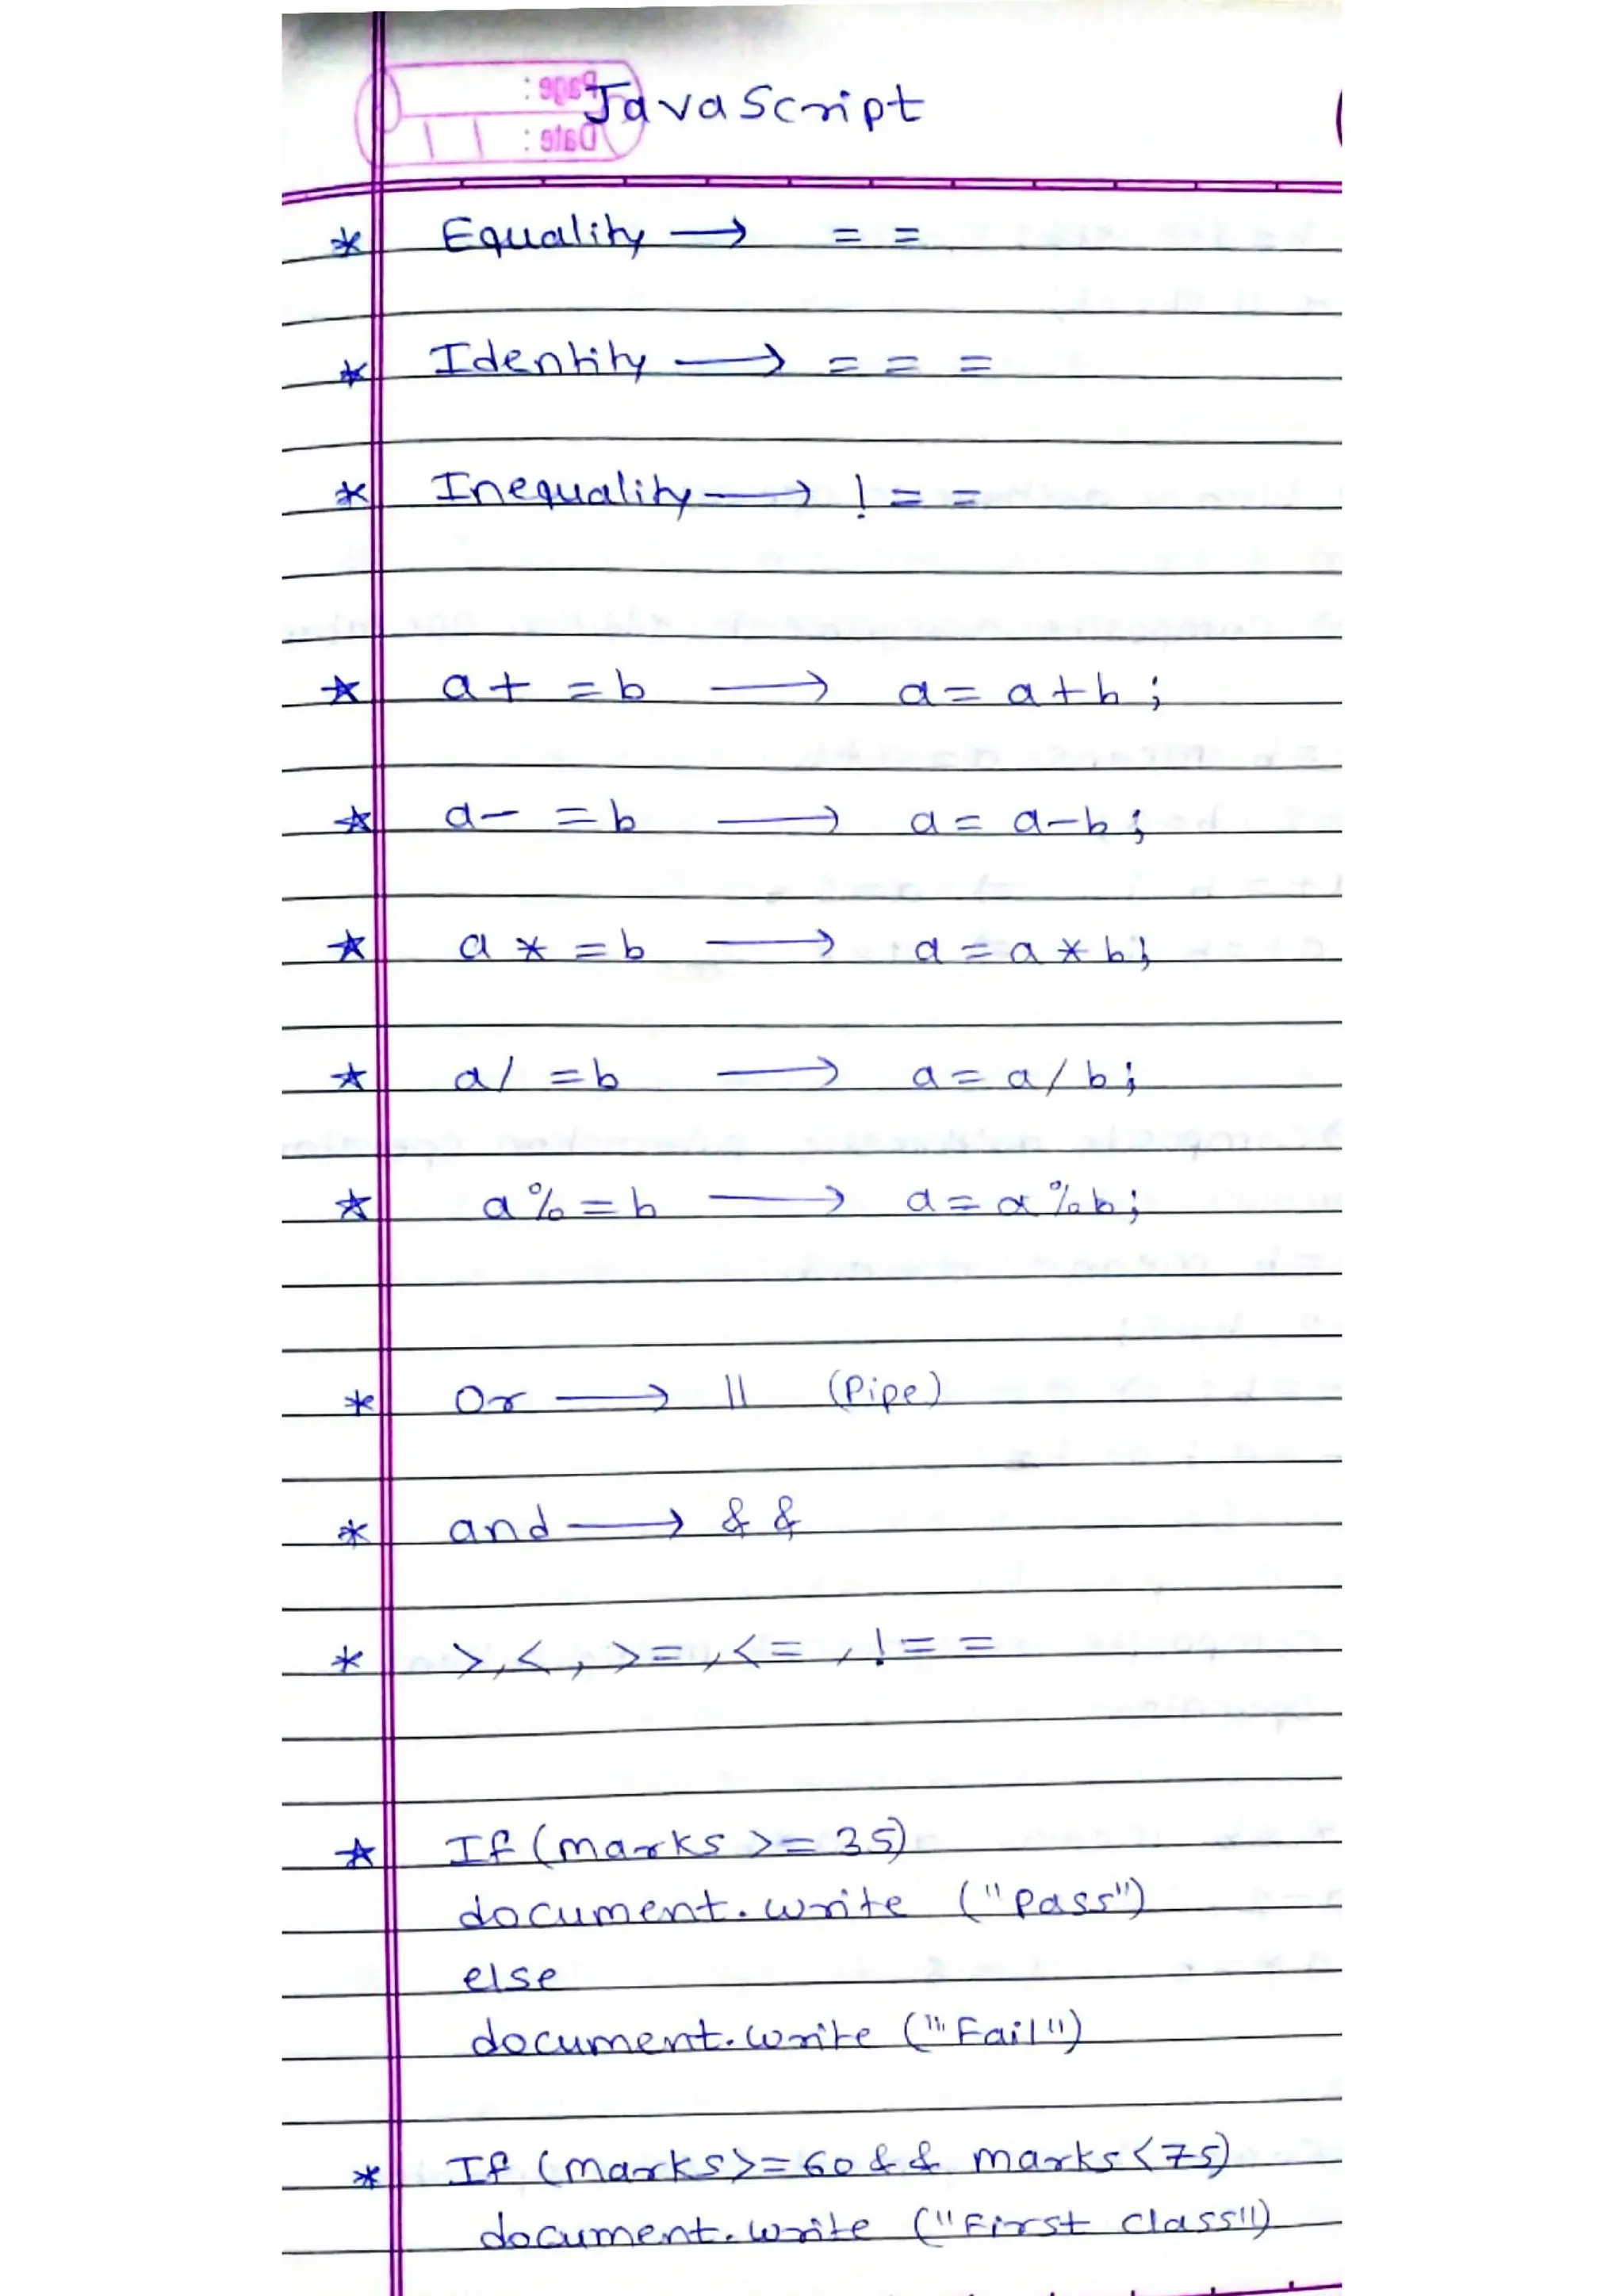 Page :
JavaScript
Date :
* Equality → = =
* Identity → = = =
* Inequality → ! = =
* a+ =b → a= a+b ;
* a- =b → a= a-b ;
* a * =b → a = a * b;
* a/ =b → a= a/b;
* a% =b → a= a%b;
* Or → || (Pipe)
* and → & &
* >, <, >=, <= , != =
* If (marks >= 35)
document.write ("Pass")
else
document.write ("Fail")
* If (marks>=60 & & marks<75)
document.write ("First class")